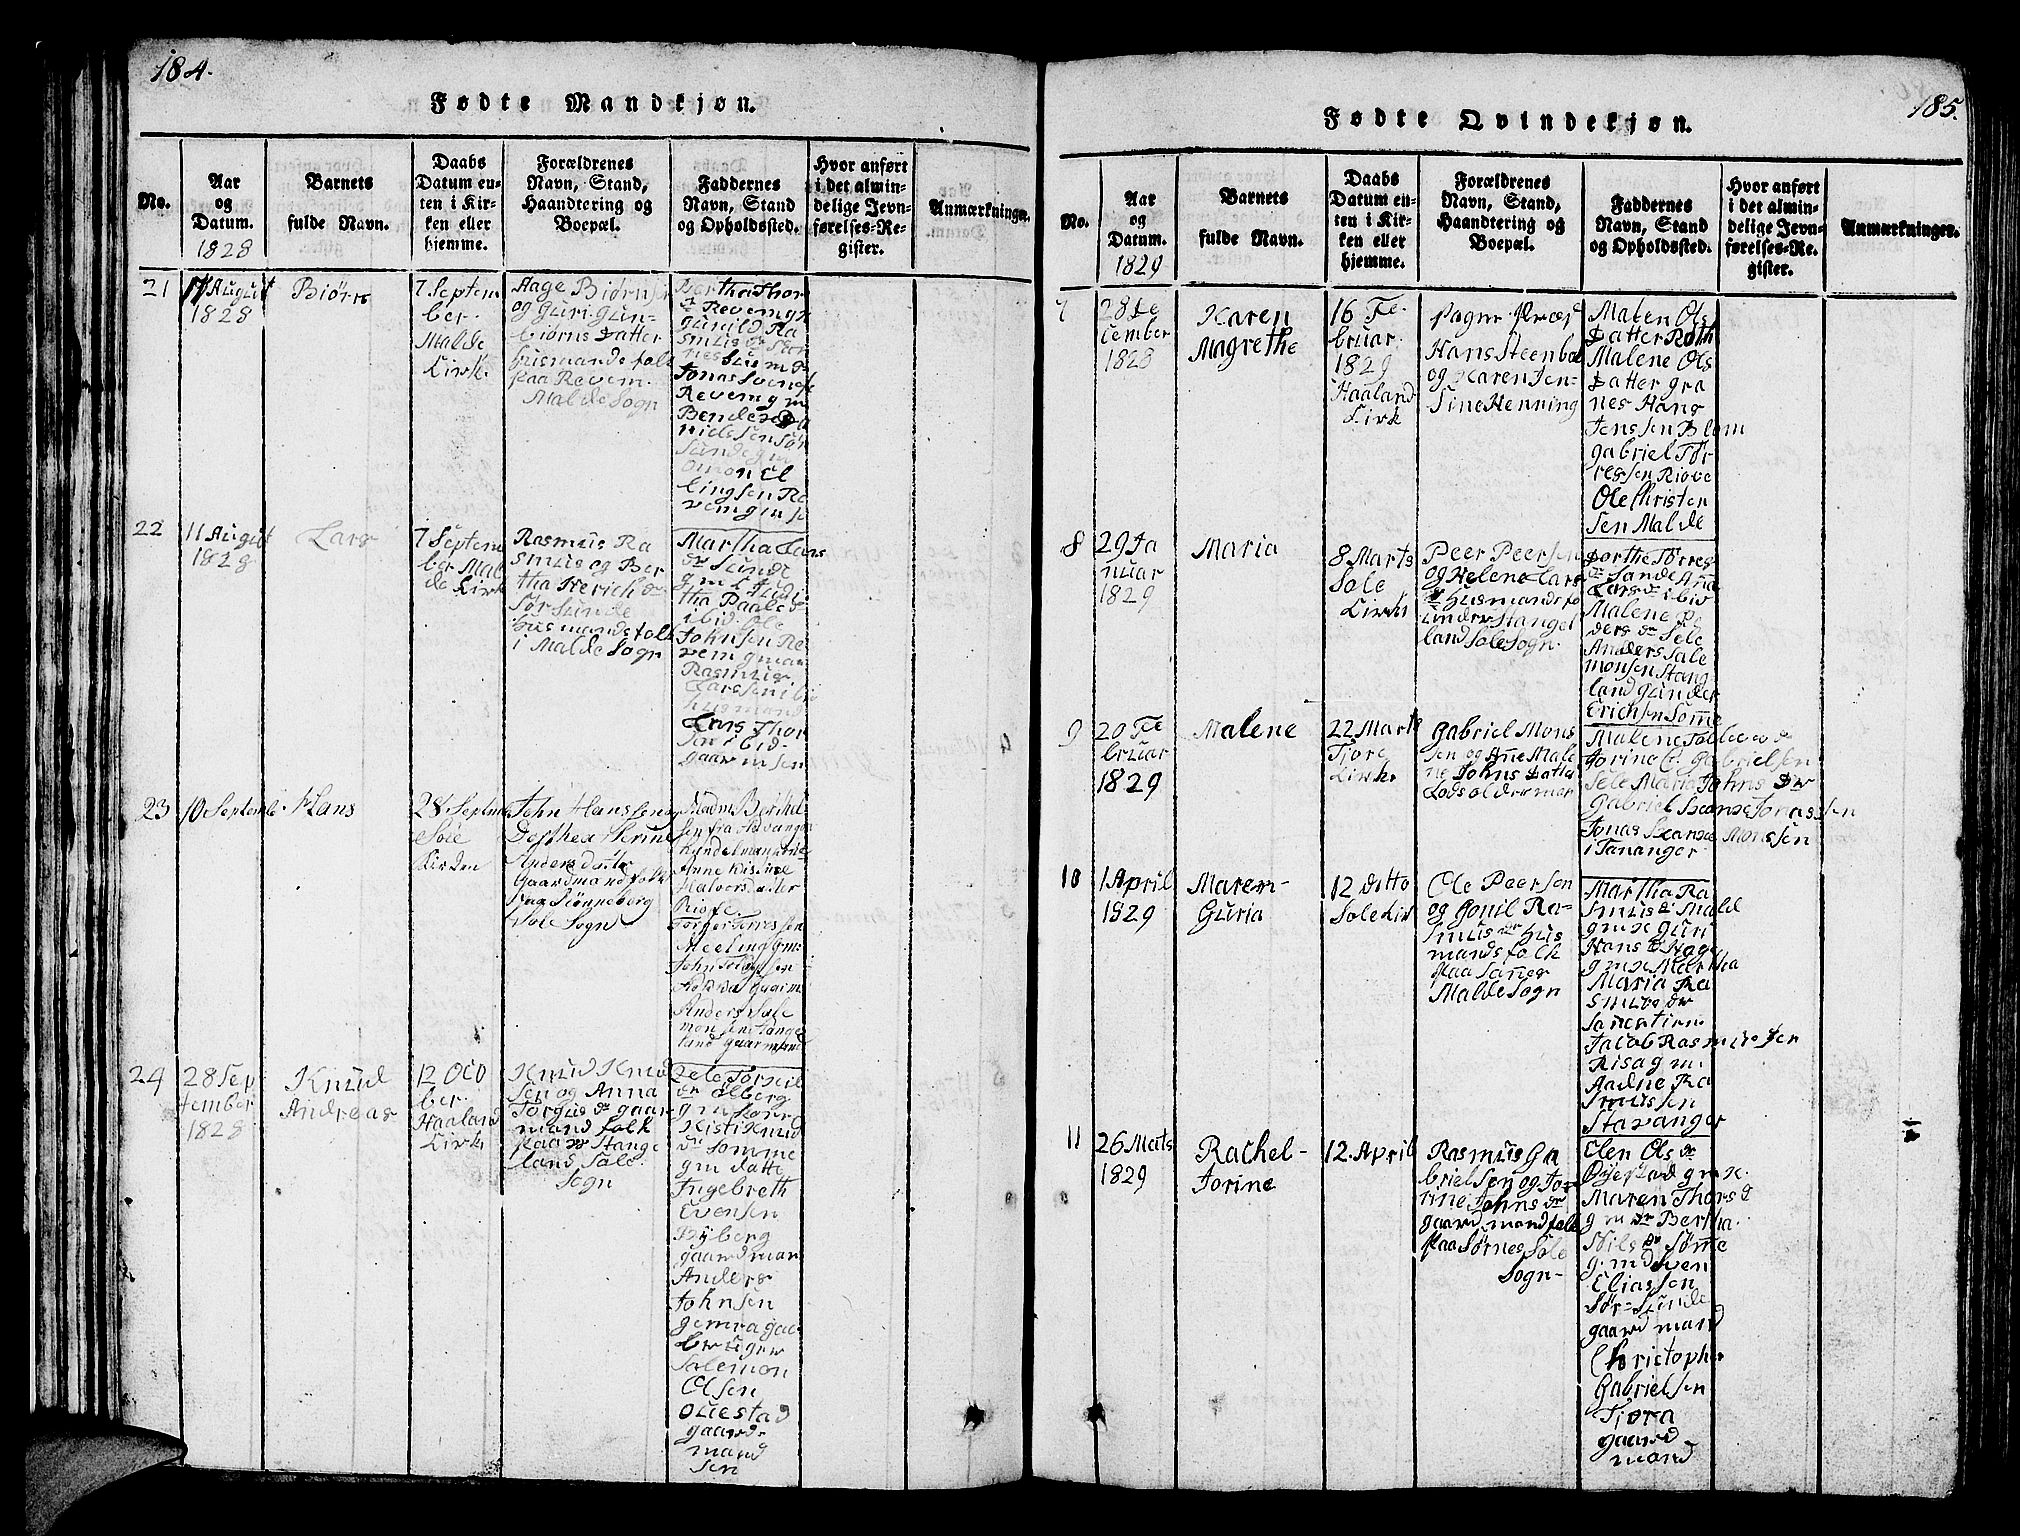 184.
Fødte Mandkjøn.
No.
Aar
og
Datum.
1828
Barnets
fulde Navn.
Daabs
Datum en-
ten i Kir-
ken eller
hjemme.
Forældrenes
Navn, Stand,
Haandtering og
Boepæl.
Faddernes
Navn, Stand
og Opholdssted.
Hvor anført
i det almin-
delige Jevn-
førelses-Re-
gister.
Anmærkninger.
21
17 August
1828
Biørn
7 Septem
ber.
Malde
Kirk.
Aage Biørns
og Guri Gun-
biørns Datter
husmandsfolk
paa Revem.
Malde Sogn
Bertha Thor
Revem gk
Gunild Ra
smus dr
Jonas Svends
Revem gm
nielssen Sør
Sunde gm
Omon El
lingsen Re
vem gm
22
11 August
1828
Lars
7 Septem
ber Mal
de Kirk
Rasmus Ra
smus og Ber
tha Henrich dr
Sør Sunde
husmandsfolk
i Malde Sogn
Martha Lars
dr Sunde
tha Paale d
ibid. Ole
Johnsen Re
vem gmand
Rasmus
Larssen ibid
husmand
Lars Thor
sen ibid.
gaardm sen
23
10 Septemb.
Hans
28 Septemb
Sole
Kirken
John Hanssen og
Dorthea Serine
Anders datter
Gaardmandsfolk
paa Rønneberg
Sole Sogn
Madm Berthel
sen fra Stavanger
Anne Kistine
Halvorsdatter
Riofe.
Torger Torressen
Meeling gm:
John
Anders Sale
monsen Stange
land gaardmand
24
28 Sep
tember
1828
Knud
Andreas
12 Octo
ber.
Haaland
Kirk
Knud Knud
sen og Anna
Torgus dr gaar
mandsfolk
paa Stange
land Sole
Sogn
dr Ølberg
gm kone
Kisti Knud
dr Somme
gm datte
Ingebreth
Evensen
Byberg
gaardmand
Anders
Johnsen
Gemra gaa-
bruger
Salemon
Olsen
Ouestad
gaard-
mand
sen
185.
Fødte Qvindekjøn.
No.
Aar
og
Datum.
1829
Barnets
fulde Navn.
Daabs
Datum en-
ten i Kir-
ken eller
hjemme.
Forældrenes
Navn, Stand,
Haandtering og
Boepæl.
Faddernes
Navn, Stand
og Opholdssted.
Hvor anført
i det almin-
delige Jevn-
førelses-Re-
gister.
Anmærkninger.
7
28 De
cember
1828
Karen
Magrethe
16 Fe-
bruar.
1829
Haaland
Kirk
Sogne Præst
Hans Steenbuk
og Karen Jen-
sine Henning
Maren Ols
Datter Roth
Malene Ols
Datter Gra
nes Hans
Jenssen Blom
Gabriel Tør
ressen Riove
Ole Christen
sen Malde
8
29 Ja
nuar
1829
Maria
8 Marts
Sole
Kirk
Peer Peersen
og Helene Lars
dr Husmandsfo
under Stange
land Sole Sogn.
Dorthe Tørres
dr Sande Ana
Lars dr ibid
Malene Pe
ders dr Sele
Anders Sale
monsen Stang
land Gunder
Erichsen Somme
9
20 Fe
bruar
1829
Malene
22 Marts
Tjore
Kirk
Gabriel Mons
sen og Ane Male
ne Johns Datter
Lodsoldermand
Malene
Jorine G. Gabrielsen
Sele Maria Johns Dr
Gabriel Svanse Jonassen
Jonas Svanse Monssen
i Tananger
10
1 April
1829
Maren-
Guria
12 ditto
Sole Kir
Ole Peersen
og Gonil Ra-
smus dr Hus
mandsfolk
paa Sannes
Malde Sogn
Martha Ra
smus dr Malde
gmk Guri
Hans dr Haga
gmk Martha
Maria Ra
smus dr
Jacob Rasmussen
Risa gm
Aadne Ra
smussen
Stavanger
11
26 Marts
1829
Rachel-
Jorine
12. April
Rasmus Ga
brielsen og Jo-
rine Johns dr
gaardmandfolk
paa Sørnes Sole
Sogn-
Elen Ols dr
Øyestad gmk.
Maren Thors d
gm dr Bertha
Nils dr Sømme
gmd Sven
Eliassen
Sør-Sunde
gaardmand
Christopher
Gabrielsen
Tjora
gaard
mand